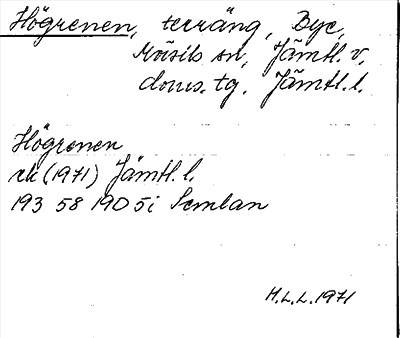 Högrenen, terräng, Bye,
Mörsils sn, Jämtl. v.
doms. tg. Jämtl. l.
Högrenen
rk (1971) Jämtl. l.
193 58 190 5i Semlan
H.L.L. 1971